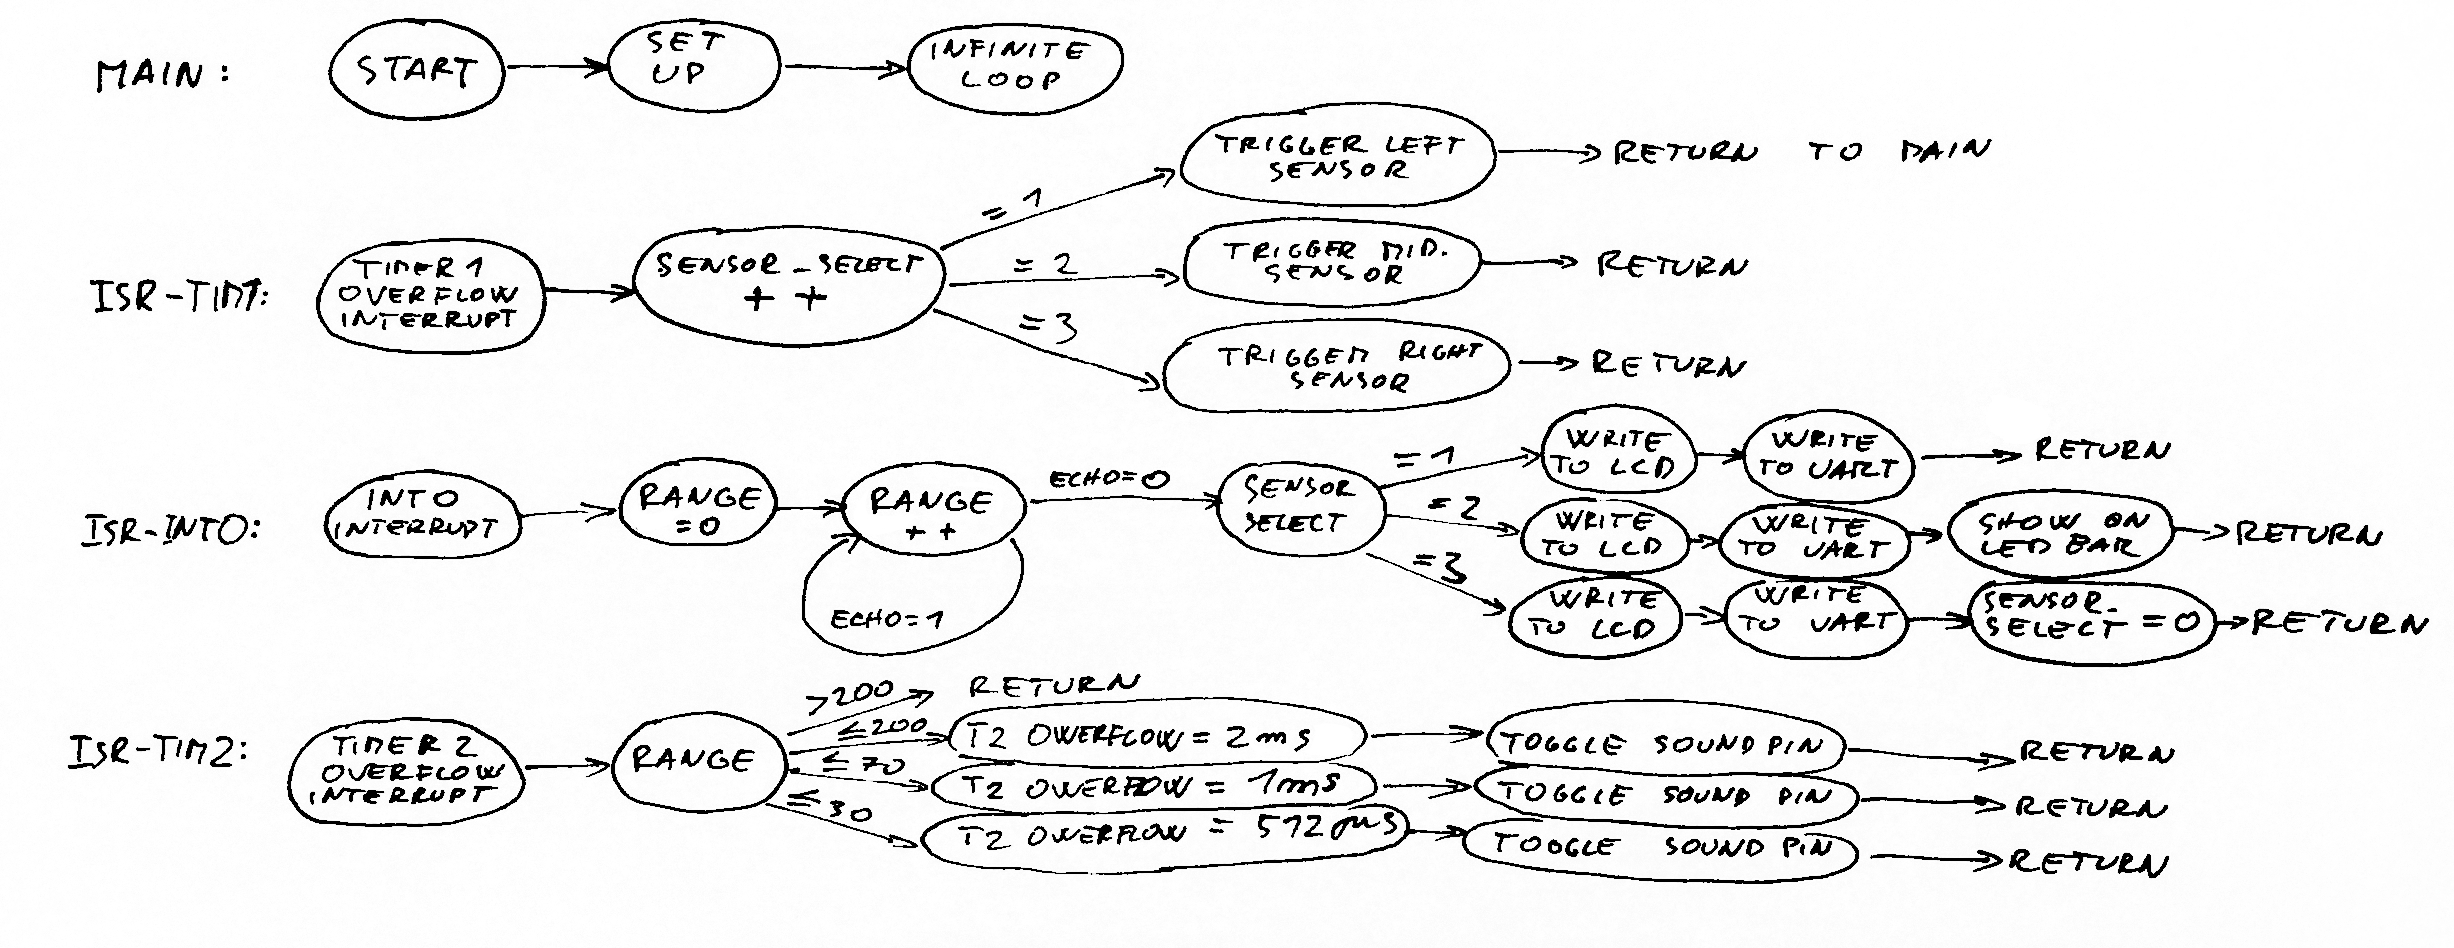 MAIN:
START
SET
UP
INFINITE
LOOP
ISR-TIM1:
TIMER 1
OVERFLOW
INTERRUPT
SENSOR_SELECT
++
=1
TRIGGER LEFT
SENSOR
RETURN TO MAIN
=2
TRIGGER MID.
SENSOR
RETURN
=3
TRIGGER RIGHT
SENSOR
RETURN
ISR-INT0:
INT0
INTERRUPT
RANGE
=0
RANGE
++
ECHO=1
ECHO=0
SENSOR
SELECT
=1
WRITE
TO LCD
WRITE
TO UART
RETURN
=2
WRITE
TO LCD
WRITE
TO UART
SHOW ON
LED BAR
RETURN
=3
WRITE
TO LCD
WRITE
TO UART
SENSOR_
SELECT = 0
RETURN
ISR-TIM2:
TIMER 2
OVERFLOW
INTERRUPT
RANGE
>200
RETURN
≤200
T2 OWERFLOW = 2ms
TOGGLE SOUND PIN
RETURN
≤70
T2 OWERFLOW = 1ms
TOGGLE SOUND PIN
RETURN
≤30
T2 OWERFLOW = 512µs
TOGGLE SOUND PIN
RETURN